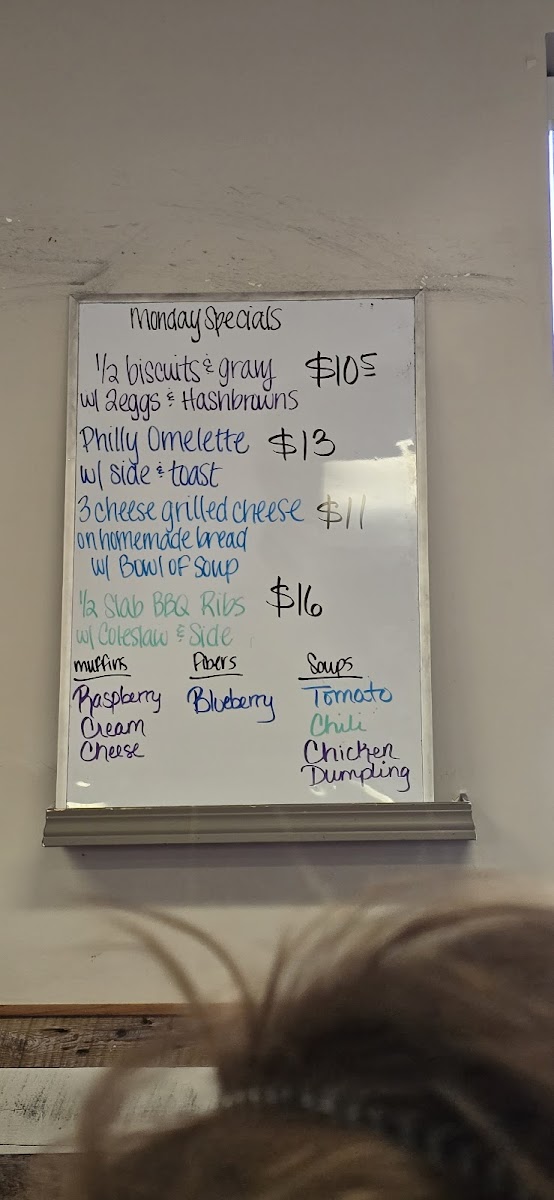 Monday Specials
1/2 biscuits & gravy $10⁵
w/ 2eggs & Hashbrowns
Philly Omelette $13
w/ side & toast
3 cheese grilled cheese $11
on homemade bread
w/ Bowl of Soup
1/2 Slab BBQ Ribs $16
w/ Coleslaw & Side
muffins
Raspberry
Cream
Cheese
Fibers
Blueberry
Soups
Tomato
Chili
Chicken
Dumpling